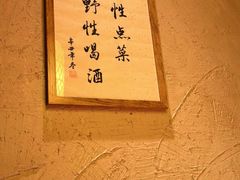 性点菜
野性喝酒